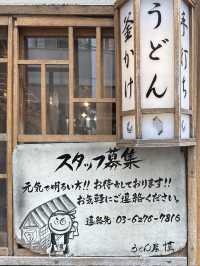 手打ち
うどん
釜かけ
スタッフ募集
元気で明るい方!! お待ちしております!!
お気軽にご連絡ください。
連絡先 03-6276-7816
うどん屋 慎